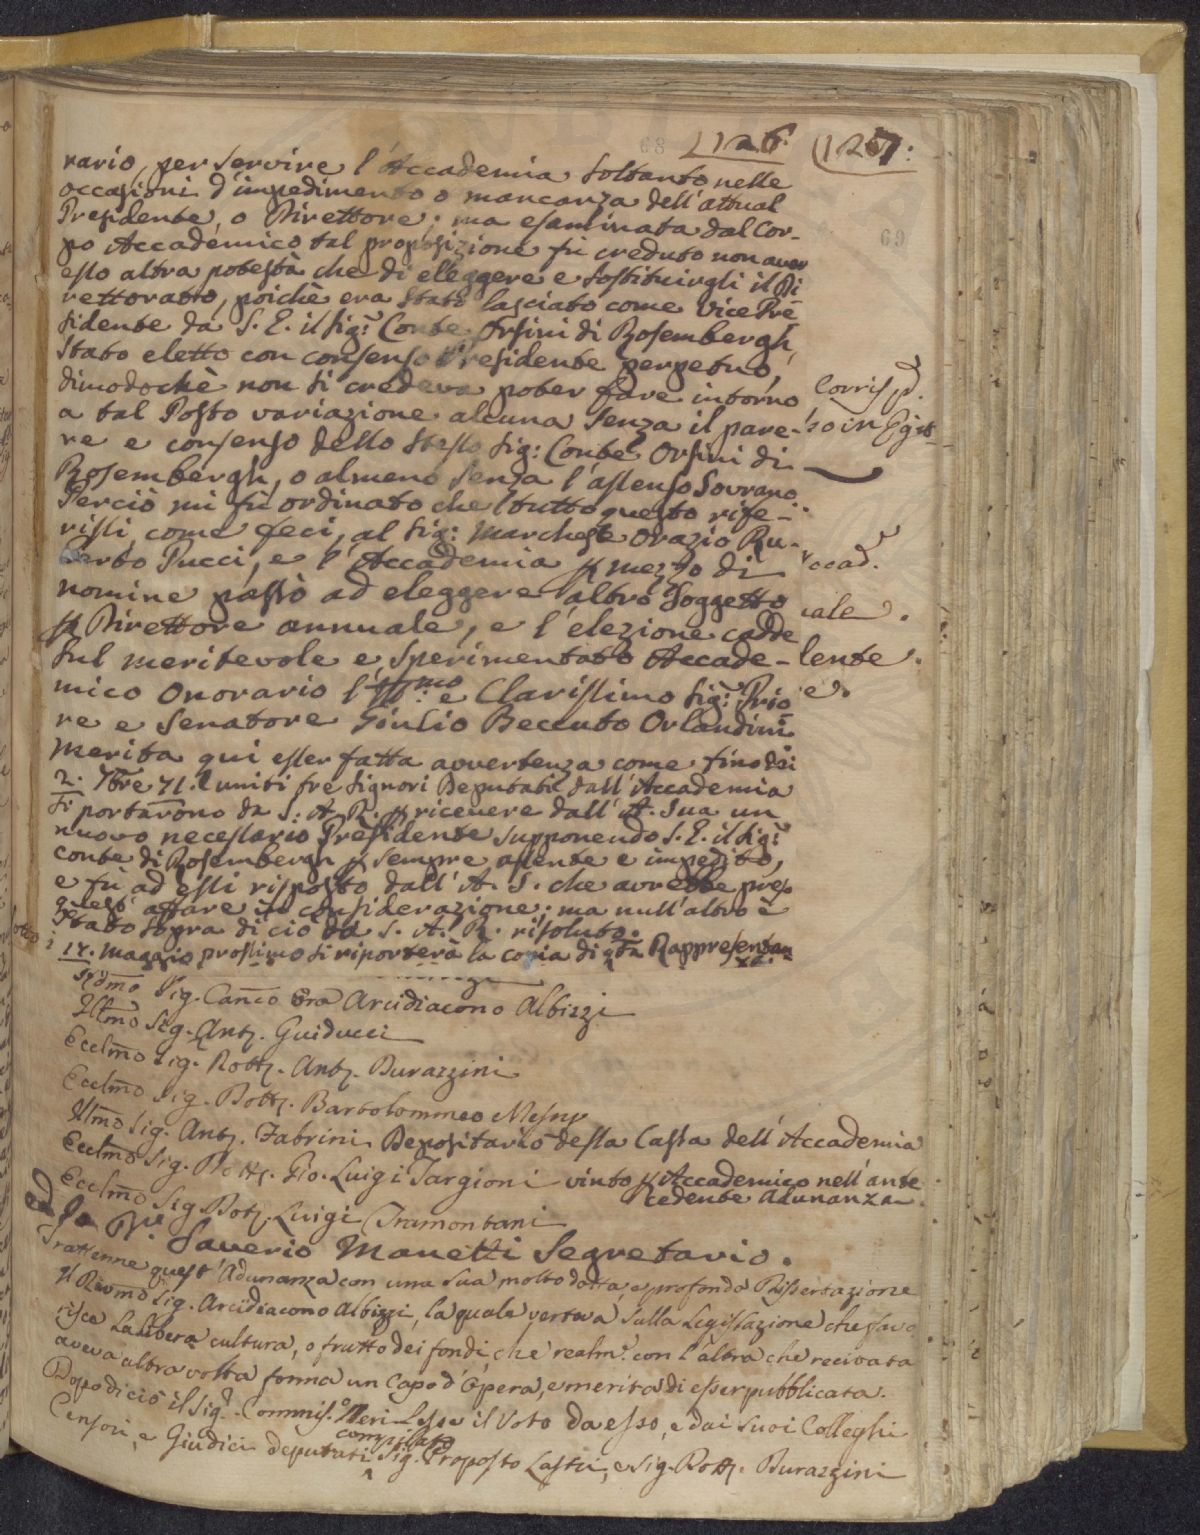 68 126. (127:
69
rario, per servire l'Accademia soltanto nelle
occasioni d'impedimento o mancanza dell'attual
Presidente, o Direttore: ma esaminata dal Cor-
po Accademico tal proposizione fù creduto non aver
esso altra potestà che di eleggere e sostituirgli il Di
rettorato, poichè era stato lasciato come Vice Pre
sidente da S. E. il Sig.r Conte Orsini di Rosembergh,
stato eletto con consenso Presidente perpetuo,
dimodochè non si credeva poter fare intorno
a tal Posto variazione alcuna senza il pare-
re e consenso dello stesso Sig: Conte Orsini di
Rosembergh, o almeno senza l'assenso Sovrano
Perciò mi fù ordinato che tutto questo rife-
rissi, come feci, al Sig: Marchese Orazio Ru-
berto Pucci, e l'Accademia p mezzo di
nomine passò ad eleggere altro Soggetto
p Direttore annuale, e l'elezione cadde
sul meritevole e sperimentato Accade-
mico Onorario l'Ill.mo e Clarissimo Sig: Prio
re e Senatore Giulio Beccuto Orlandini
Merita qui esser fatta avvertenza come fino dei
2. 7bre 71. uniti tre Signori Deputati dall'Accademia
si portarono da S. A. R. p ricevere dall'A. Sua un
nuovo necessario Presidente supponendo S. E. il Sig.r
Conte di Rosembergh p sempre assente e impedito,
e fù ad essi risposto dall'A. S. che avrebbe pres.
quest'affare in considerazione; ma null'altro è
stato sopra di ciò da S. A. R. risoluto.
i 14. Maggio prossimo si riporterà la copia di qta Rappresentan
za.
Corrisp.d
so in Egit
ccad.
uale.
lente.
e.
Rev̄dm̄o Sig. Can̄co Era Arcidiacono Albizzi
Illm̄o Sig. Antᵒ. Guiducci
Eccelm̄o Sig. Dottᵉ. Antᵒ. Durazzini
Eccelm̄o Sig. Dottᵉ. Bartolommeo Mesny
Illm̄o Sig. Antᵒ. Fabrini Depositario della Cassa dell'Accademia
Eccelm̄o Sig. Dottᵉ. Gio. Luigi Targioni vinto p Accademico nell'ante
cedente Adunanza
Eccelm̄o Sig Dotᵉ. Luigi Tramontani
ed Io Saverio Manetti Segretario.
Trattenne quest'Adunanza con una sua molto dotta, e profonda Dissertazione
il Revm̄o Sig. Arcidiacono Albizzi, la quale verteva sulla Legislazione che favo
risce la libera cultura, o frutto dei fondi, che realm.e con l'altra che recitata
aveva altra volta forma un Capo d'Opera, e merita di esser pubblicata.
Dopo di ciò il Sig.r Commiss.o Neri Lesse il Voto da esso, e dai suoi Colleghi
compilato
Censori, e Giudici deputati Sig. Proposto Lastri, e Sig. Dottᵉ. Durazzini